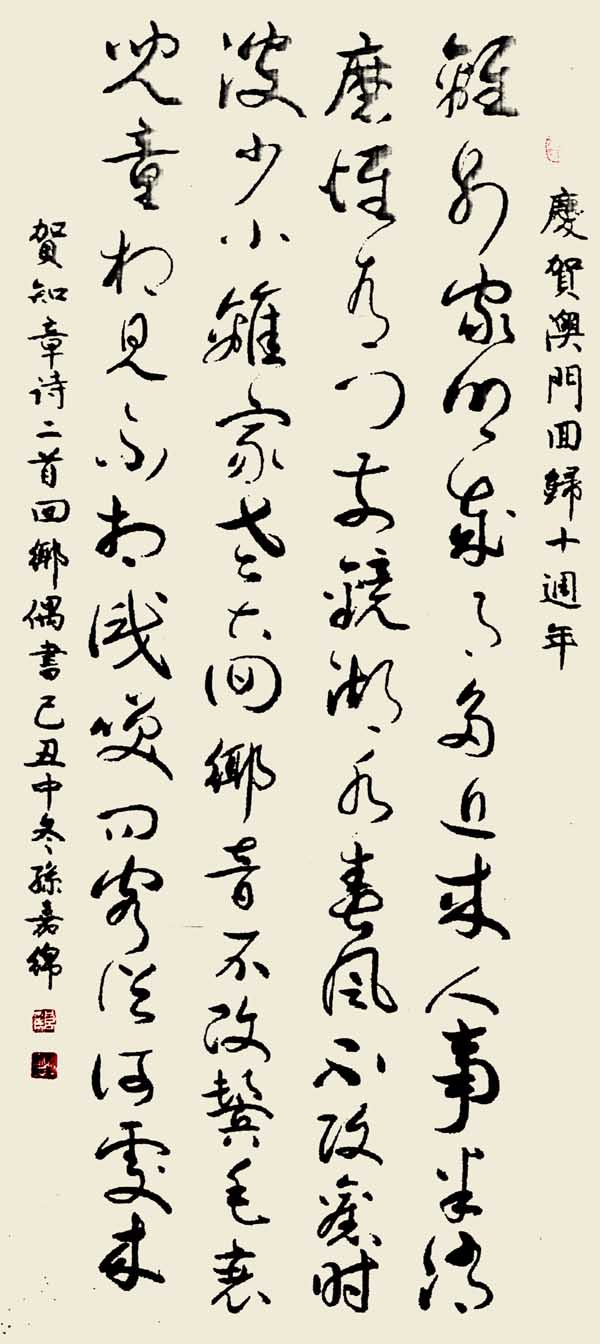 慶賀澳門回歸十週年
離別家鄉歲月多近來人事半消
磨惟有門前鏡湖水春風不改舊时
波少小離家老大回鄉音不改鬢毛衰
兒童相見不相識笑問客從何處來
賀知章诗二首回鄉偶書己丑中冬孫嘉綿